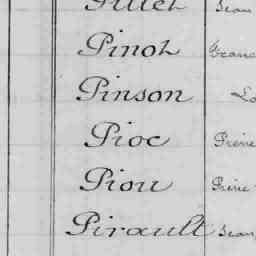 Pinot Franc
Pinson Lo
Pioc Pierre
Piou Pierre
Pirault Jean